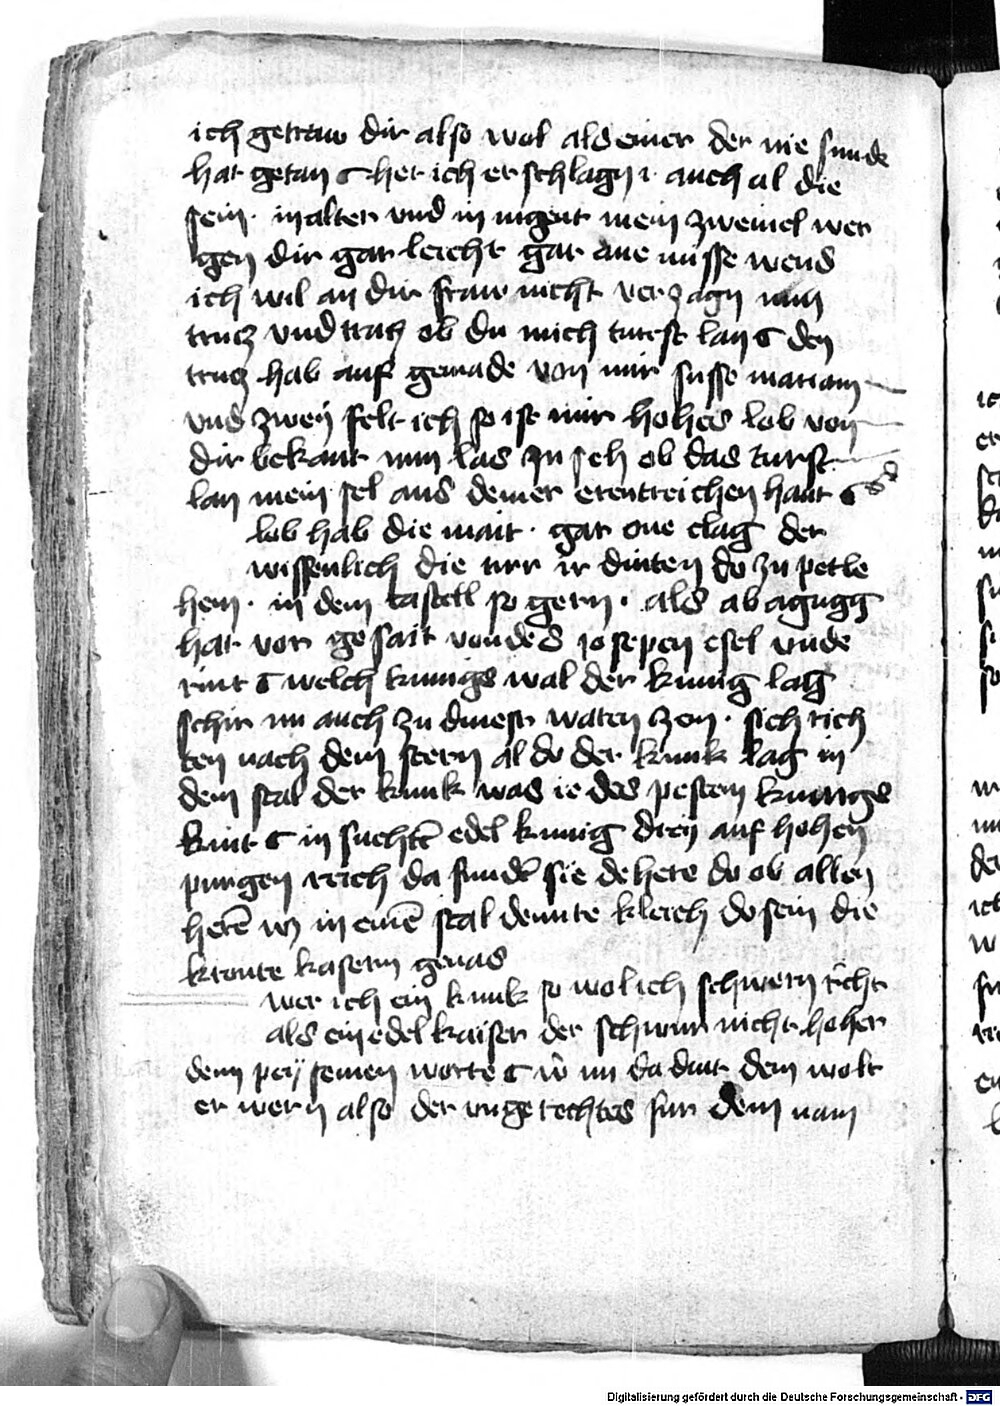 ich getraw dir also wol als einer der nie sunde
hat getan het ich er schlagn auch al die
sein · in alter und in iugent mein zweiuel wer
gen dir gar leicht gar ane
ich wil an dir fraw nicht verzagn nun
trucz und tratz ob du mich turest lan den
trucz hab auf genade von mir susse mariam
und zwen felt ich so ist mir hohes lob von
dir bekant nun las zu seh ob das turst
lan mein sel aus deiner erentreichen hant
lob hab die mait · gar one clag der
wissenlich die ir dinten do zu petle
hem · in dem castell so gern · als abagugg
hat vor gesait von des josepen esel unde
rint welch kunigs wal der kunig lag
schir nu auch zu dinest waren zen · sich rich
ten nach dem stern al do der kunk lag in
dem stal der kunk was ie des pesten kunigs
kint in suchtē edel kunig drey auf hohen
purgen reich da fundē sie de here do ob allen
herē in einē stal do sein die
kreute kasern genas
wer ich ein kunk so wolich schwern
als ein edel kaiser der schwur nicht hoher
denn pey seinen worte nu da mit dem wolt
er wern also der ungerechtes fur dem nam
Digitalisierung gefördert durch die Deutsche Forschungsgemeinschaft - DFG